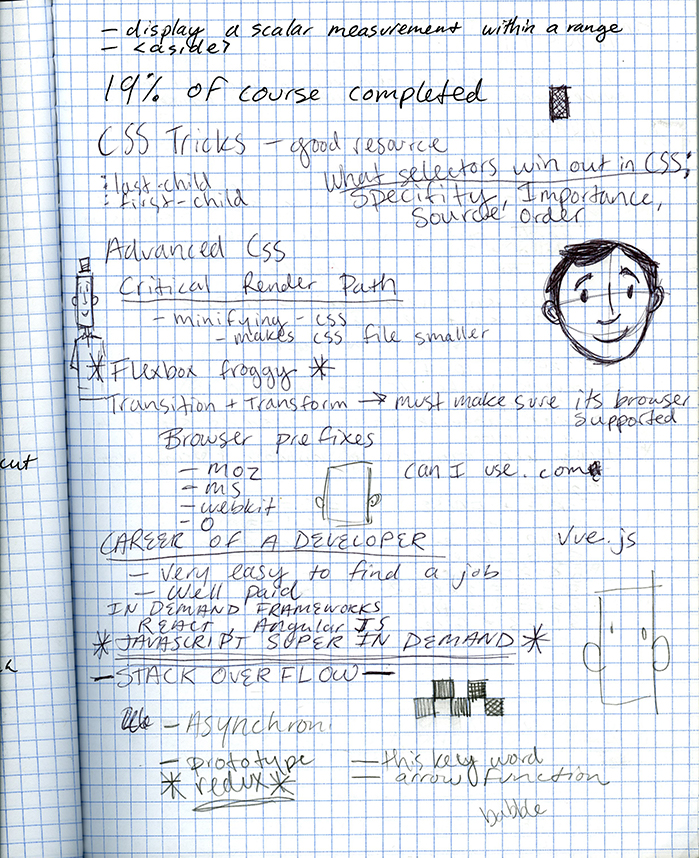 - display a scalar measurement within a range
- <aside>
19% of course completed
CSS Tricks - good resource
:last-child
:first-child
What selectors win out in CSS:
Specifity, Importance,
Source order
Advanced CSS
Critical Render Path
- minifying - css
- makes css file smaller
* Flexbox froggy *
Transition + Transform → must make sure its browser
supported
Browser prefixes
- moz
- ms
- webkit
- O
can I use.com
cut
CAREER OF A DEVELOPER
Vue.js
- Very easy to find a job
- Well paid
IN DEMAND FRAMEWORKS
REACT, Angular JS
* JAVASCRIPT SUPER IN DEMAND *
- STACK OVERFLOW -
- Asynchron
- prototype
- this key word
* redux *
- arrow function
babble